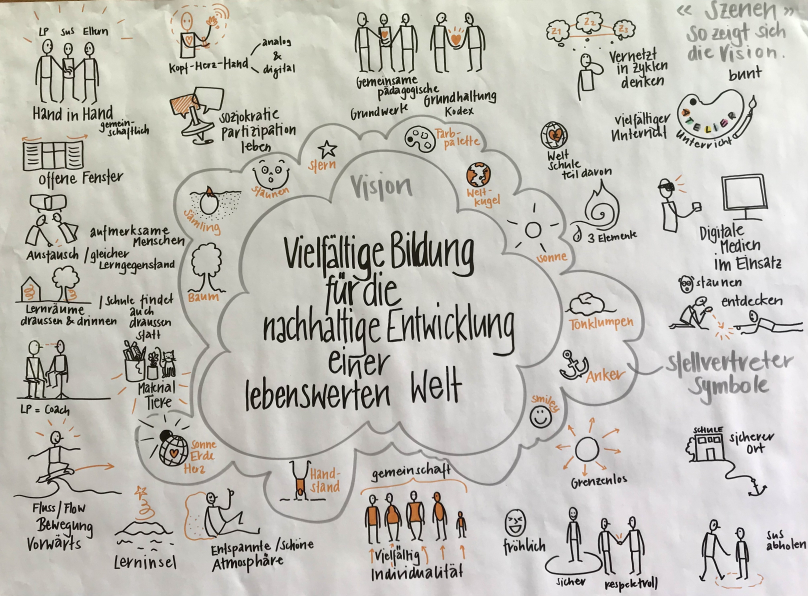 LP SuS Eltern
Hand in Hand
gemein-
schaftlich
Kopf-Herz-Hand
analog
&
digital
soziokratische
Partizipation
leben
Gemeinsame
pädagogische
Grundwerte Grundhaltung
Kodex
Z1 Z2 Z3
Vernetzt
in Zyklen
denken
« Szenen »
So zeigt sich
die Vision.
bunt
vielfältiger
Unterricht
ATELIER
Unterricht
offene Fenster
aufmerksame
Menschen
Austausch / gleicher
Lerngegenstand
Lernräume
draussen & drinnen
/ Schule findet
auch
draussen
statt
LP = Coach
Material
Tiere
Fluss/Flow
Bewegung
Vorwärts
Lerninsel
Entspannte / schöne
Atmosphäre
Vision
Vielfältige Bildung
für die
nachhaltige Entwicklung
einer
lebenswerten Welt
Sämling
staunen
Stern
Farb-
palette
Welt-
kugel
Sonne
Tonklumpen
Anker
smiley
Hand-
stand
Sonne
Erde
Herz
Baum
stellvertreter
Symbole
Welt
Schule
teil davon
3 Elemente
Digitale
Medien
im Einsatz
staunen
entdecken
Grenzenlos
SCHULE
sicherer
Ort
gemeinschaft
Vielfältig
Individualität
fröhlich
sicher
respektvoll
SuS
abholen